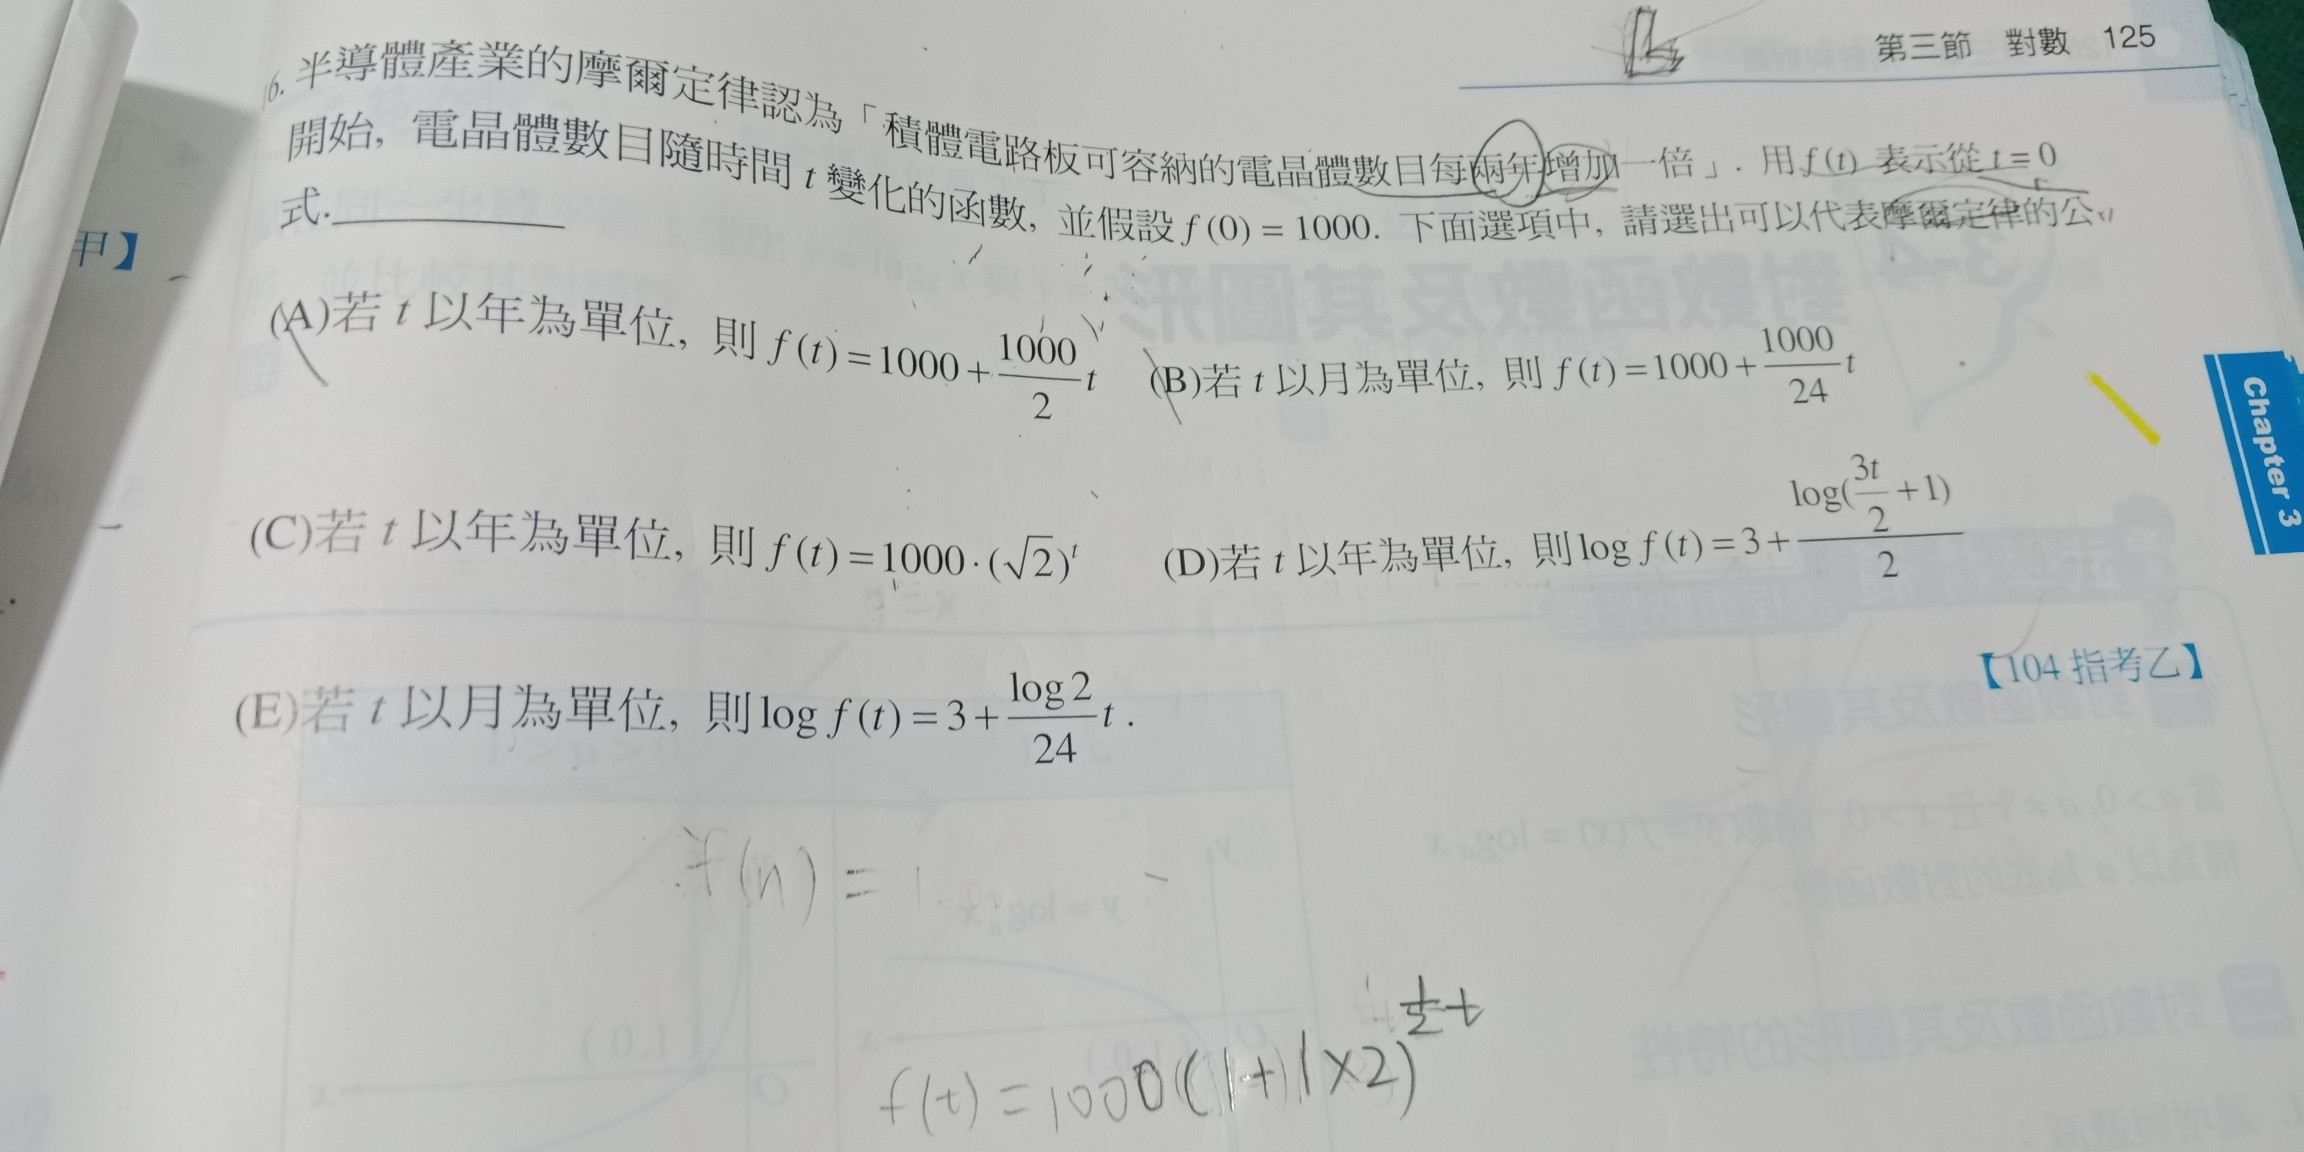 第三節 對數 125
6. 半導體產業的摩爾定律認為「積體電路板可容納的電晶體數目每兩年增加一倍」. 用 f(t) 表示從 t = 0
開始, 電晶體數目隨時間 t 變化的函數, 並假設 f(0) = 1000. 下面選項中, 請選出可以代表摩爾定律的公
式.
甲】
(A)若 t 以年為單位, 則 f(t) = 1000 + \frac{1000}{2}t (B)若 t 以月為單位, 則 f(t) = 1000 + \frac{1000}{24}t
(C)若 t 以年為單位, 則 f(t) = 1000 · (√2)^t (D)若 t 以年為單位, 則 log f(t) = 3 + \frac{log(\frac{3t}{2} + 1)}{2}
(E)若 t 以月為單位, 則 log f(t) = 3 + \frac{log 2}{24}t .
【104 指考乙】
Chapter 3
f(n) = 1
f(t) = 1000(1+1×2)^{\frac{1}{2}t}